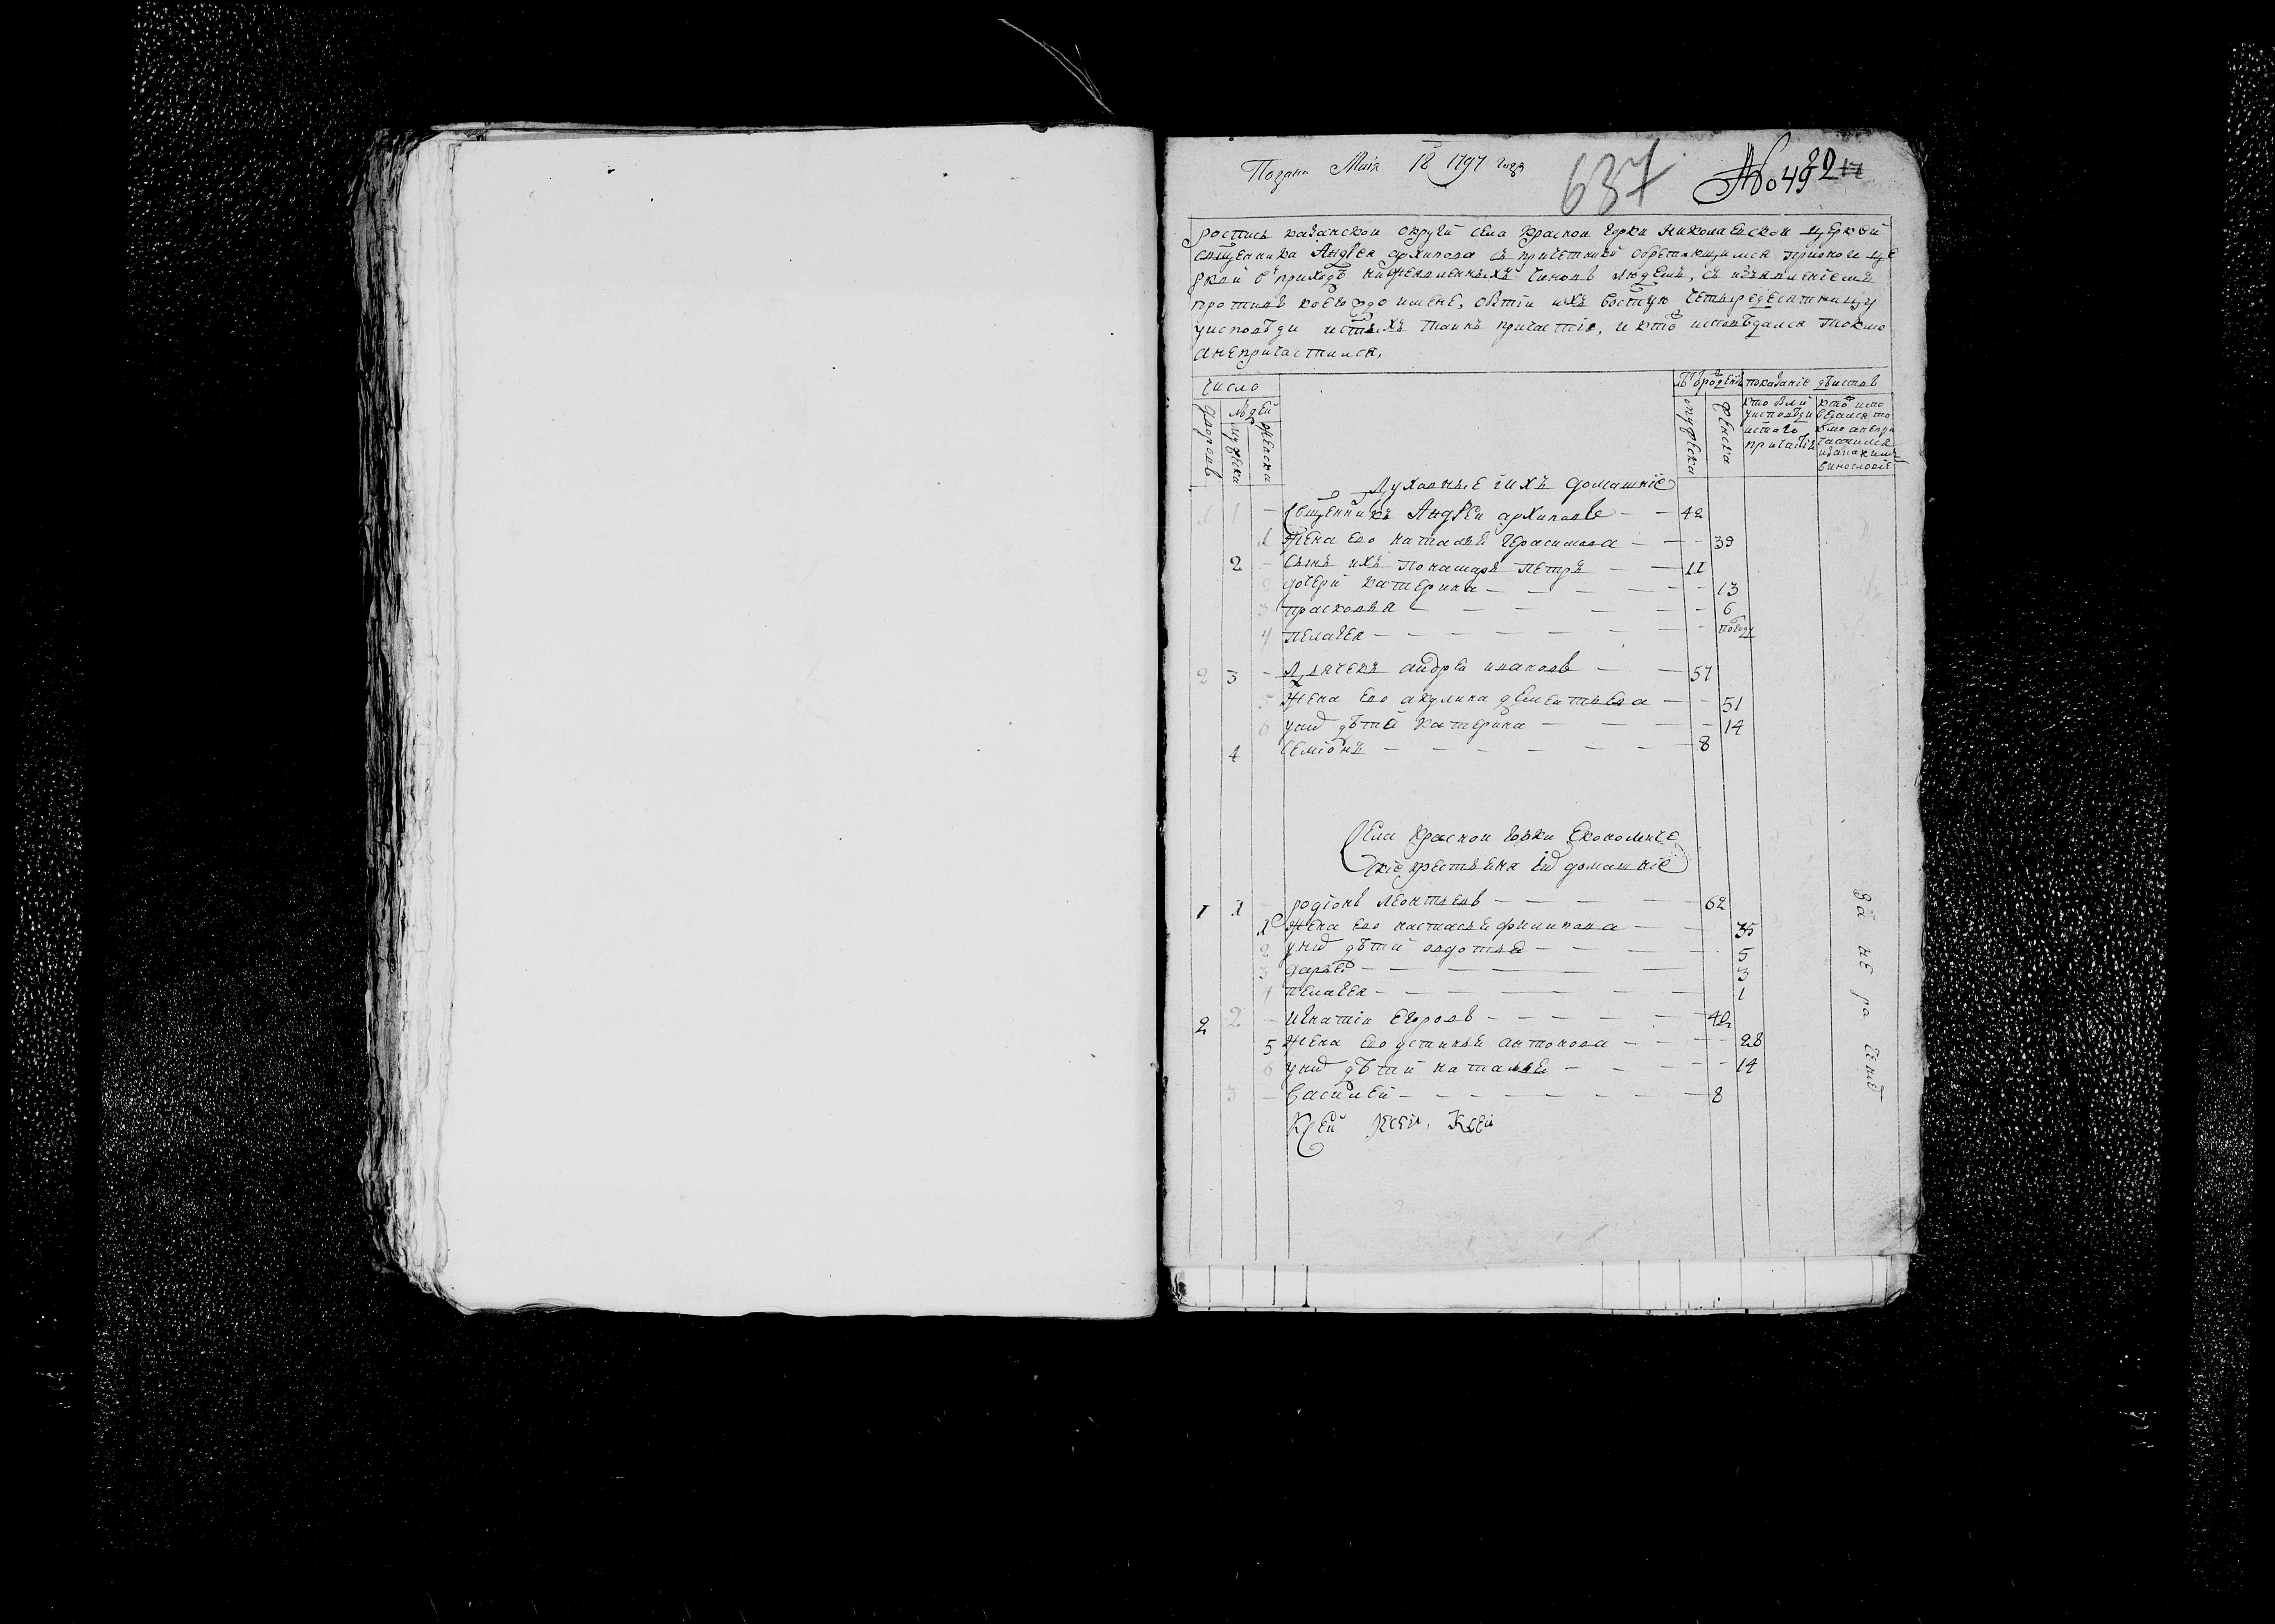 Подана Маія 18 1797 года
637
No 49
роспись казанской округи села Красной горки Николаевской церкви
священника Андрея архипова съ причетники обретающимся при оной це
ркви в приходѣ нижеявленныхъ чиновъ людемъ, съ изъявленіемъ
противъ коегождо имене, о бытіи ихъ во святую четыредесятницу
у исповѣди и святыхъ таинъ причастія, и кто исповѣдался токмо
а не причастился,
число
дворовъ
людей
мужеска
женска
лѣта от рожденія
мужеска
женска
показаніе дѣйствъ
кто были
у исповѣди
и святаго
причастія
кто испо
ведался то
кмо а не при
частился
и за каким
винословіе
Духовные и ихъ домашніе
1 1 - Священникъ Андрей архиповъ - - 42
1 Жена ево наталья герасимова - - - 39
2 - Сынъ ихъ Понамарь Петръ - - 11
2 дочери Катерина - - - - - - 13
3 прасковья - - - - - - 6
4 пелагея - - - - - - - полгоду
2 3 - Дьячекъ андрей ивановъ - - 57
5 Жена ево акулина дементьева - - 51
6 у нихъ дѣтей Катерина - - - - 14
4 Семіонъ - - - - - - - 8
Села Красной горки Економиче
скіе крестьяня и ихъ домашніе
1 1 - родіонъ леонтьевъ - - - - - 62
1 Жена ево настасья филипова - - 35
2 у нихъ дѣтей овдотья - - - - 5
3 дарья - - - - - - - 3
4 пелагея - - - - - - - 1
2 2 - Игнатіи Егоровъ - - - - - 42
5 Жена ево устинья антонова - - - - 28
6 у нихъ дѣтей наталья - - - - - 14
3 - василей - - - - - - - 8
За не ра